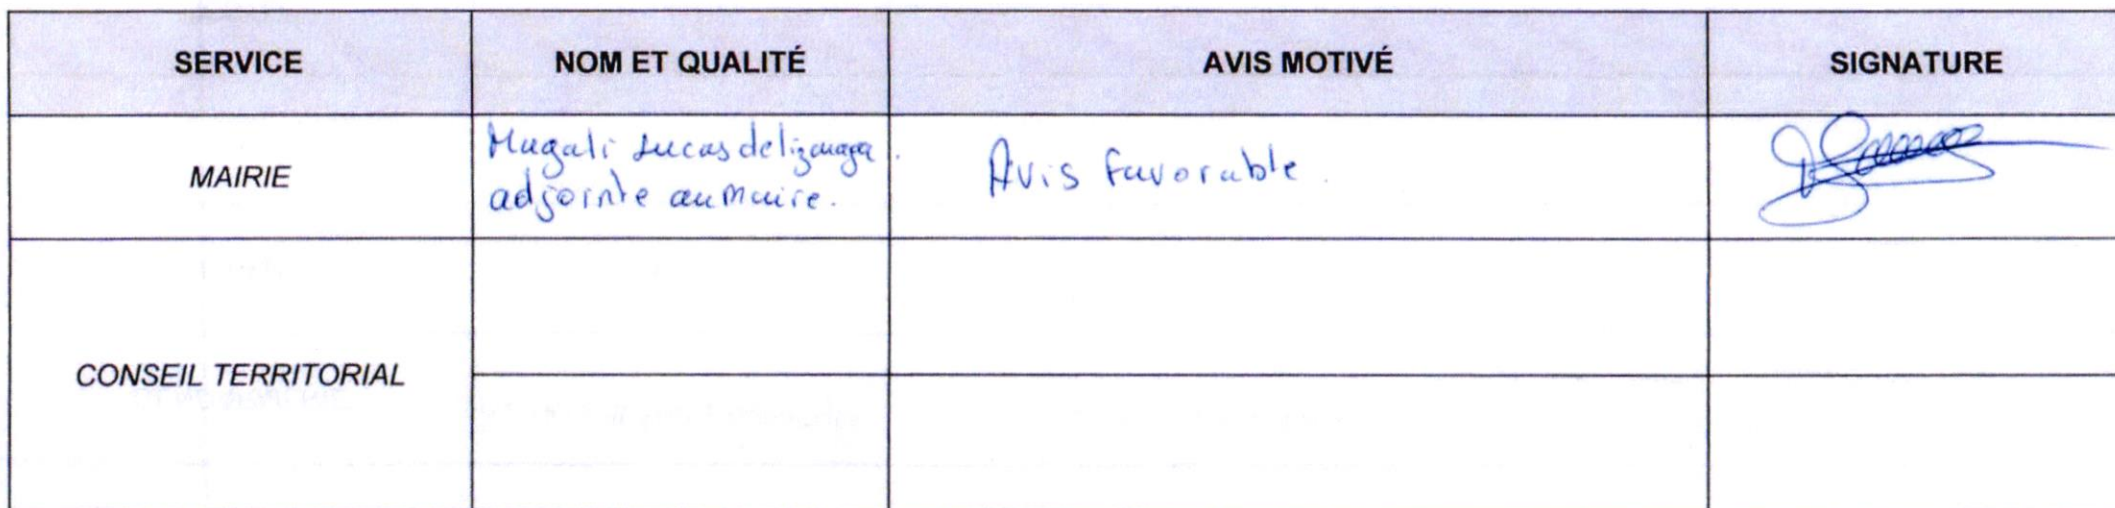 SERVICE NOM ET QUALITÉ AVIS MOTIVÉ SIGNATURE
MAIRIE
Magali Lucas de
adjointe au maire.
Avis favorable.
CONSEIL TERRITORIAL